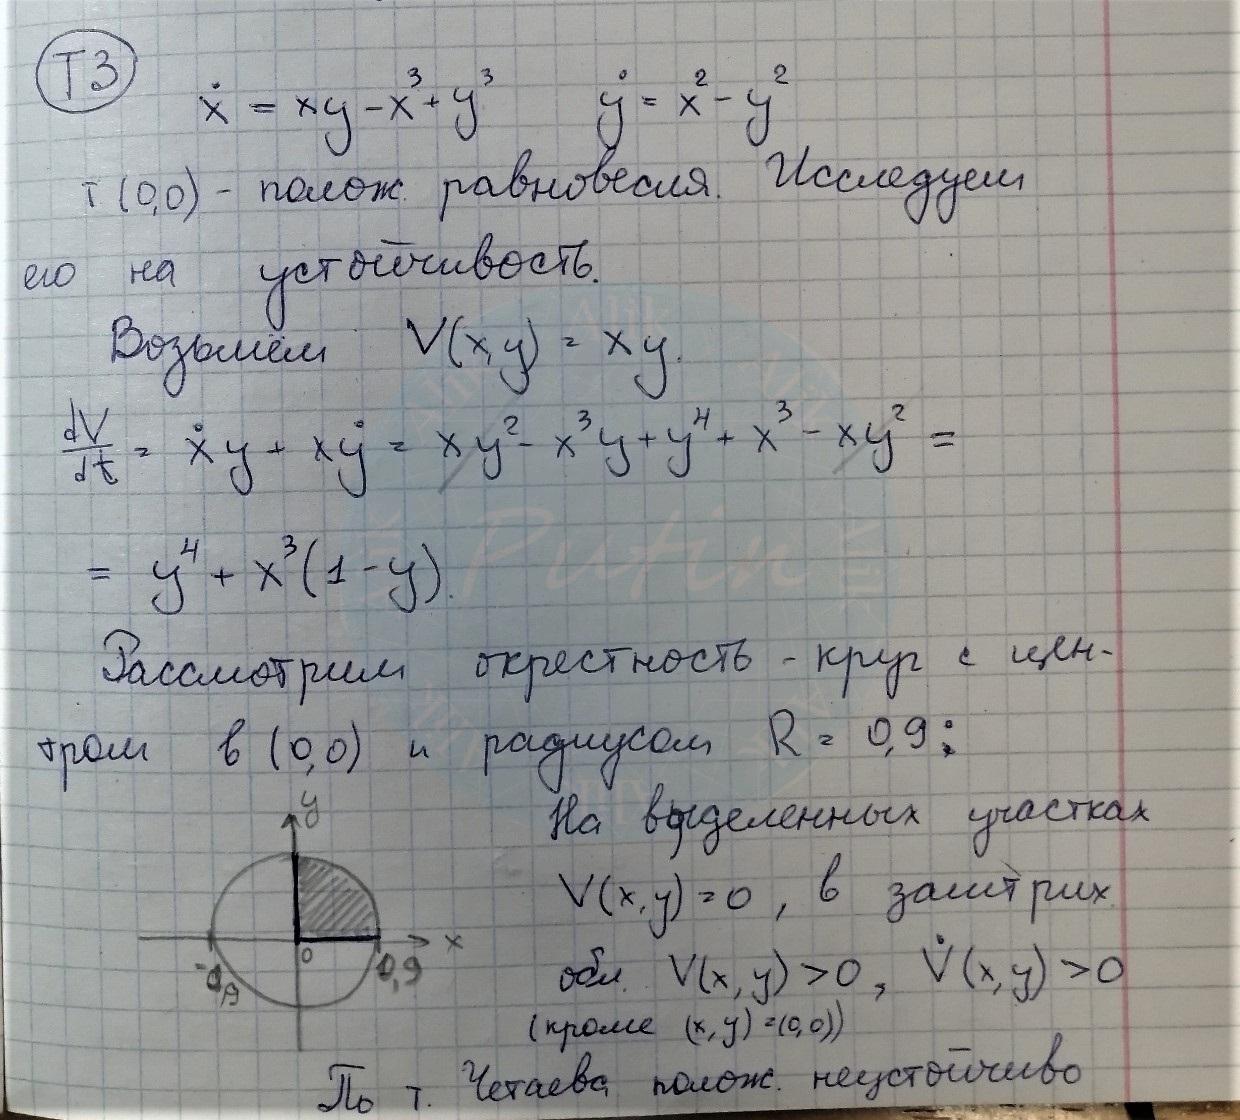 Т3
ẋ = xy - x³ + y³ ẏ = x² - y²
т (0,0) - полож. равновесия. Исследуем
его на устойчивость.
Возьмём V(x,y) = xy.
dV/dt = ẋy + xẏ = xy² - x³y + y⁴ + x³ - xy² =
= y⁴ + x³(1-y).
Рассмотрим окрестность - круг с цен-
тром в (0,0) и радиусом R = 0,9:
y
На выделенных участках
V(x,y)=0, в заштрих.
0 x
-0,9 0,9
обл. V(x,y)>0, V̇(x,y)>0
(кроме (x,y)=(0,0))
По т. Четаева полож. неустойчиво
Putin
Alik